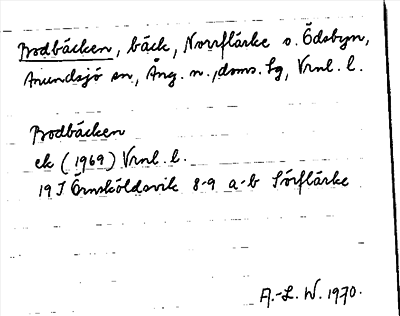 Bodbäcken, bäck, Norrflärke o. Ödsbyn,
Anundsjö sn, Ång. n., doms. lg, Vrnl. l.
Bodbäcken
ek (1969) Vrnl. l.
19 I Örnsköldsvik 8-9 a-b Sörflärke
A.-L. W. 1970.